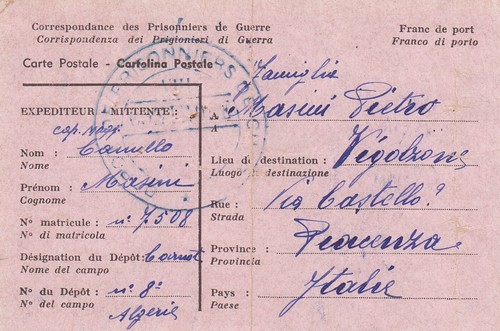 Correspondance des Prisonniers de Guerre
Corrispondenza dei Prigionieri di Guerra
Franc de port
Franco di porto
Carte Postale - Cartolina Postale
EXPEDITEUR MITTENTE:
cap. magg.
Nom : Camillo
Nome
Prénom : Masini
Cognome
No matricule : n° 7508
N° di matricola
Désignation du Dépôt: Carnot
Nome del campo
No du Dépôt : n. 8°
N° del campo
Algerie
Famiglia
A Masini Pietro
A
Lieu de destination : Vigolzone
Luogo di destinazione
Rue : Via Castello
Strada
Province : Piacenza
Provincia
Pays : Italie
Paese
PRISONNIERS